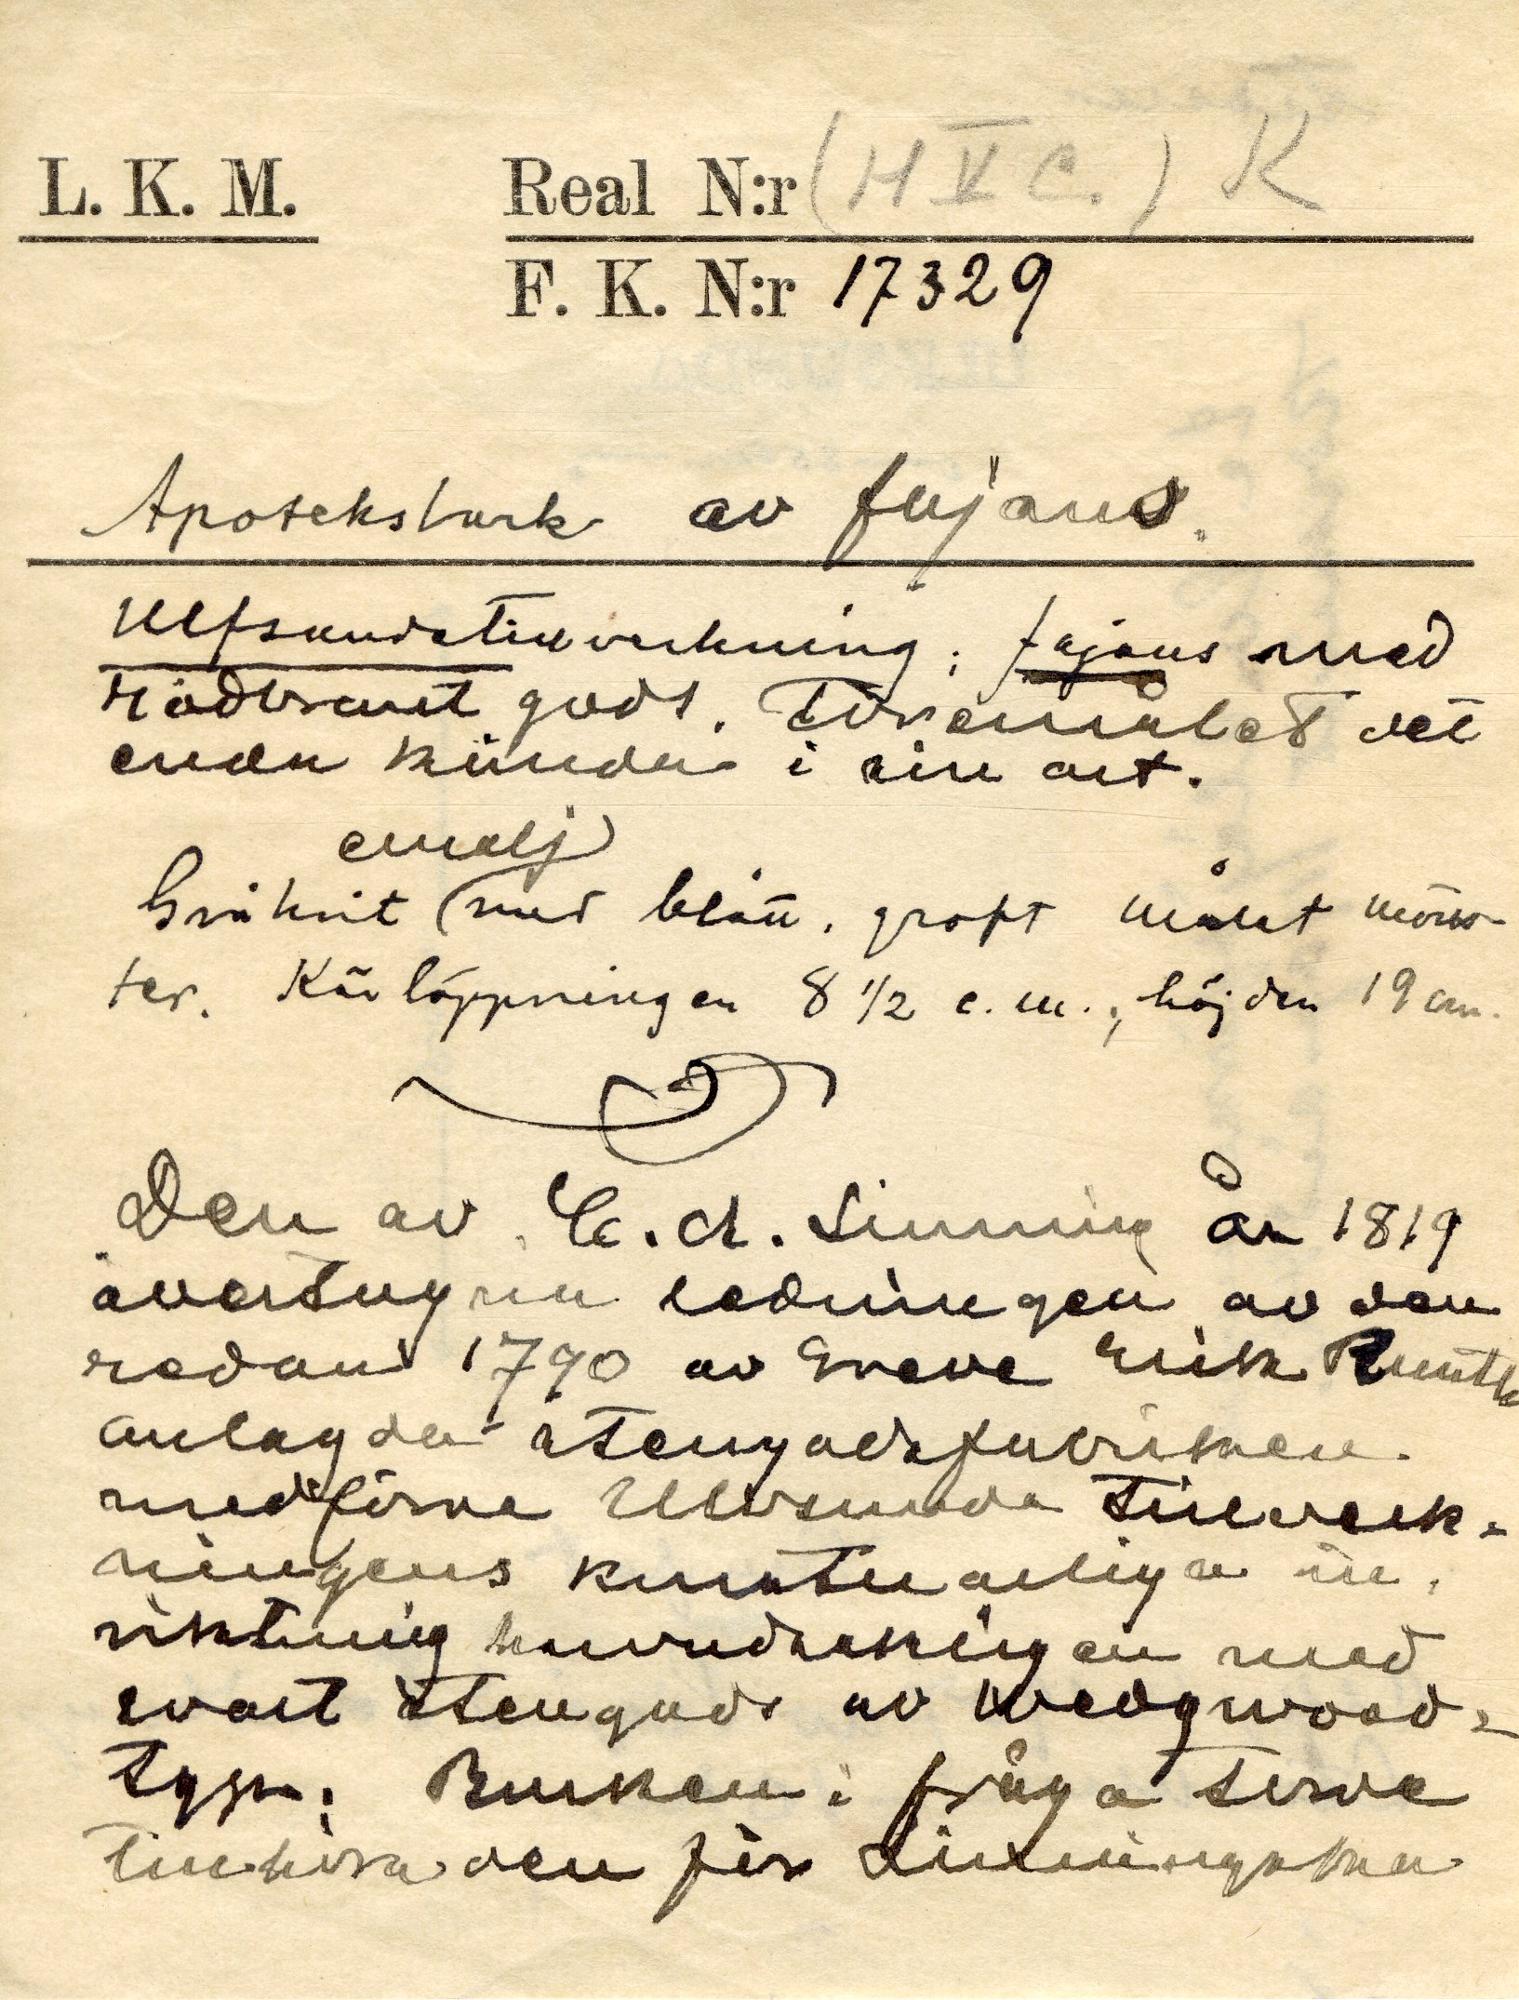 L. K. M. Real N:r (H V C.) K
F. K. N:r 17329
Apoteksburk av fajans.
Ulfsundatillverkning; fajans med
rödbränt gods. Föremålet det
enda kända i sin art.
emalj
Gråhvit med blått, groft målat möns-
ter. Käröppningen 8 1/2 c.m., höjden 19 cm.
Den av C. A. Linning År 1819
övertagna ledningen av den
redan 1790 av Greve Erik Ruuth
anlagda stengodsfabriken
medförde Ulvsunda tillverk-
ningens konstnärliga in-
riktning huvudsakligen med
svart stengods av Wedgwood-
typ. Burken i fråga torde
tillhöra den för Linningska